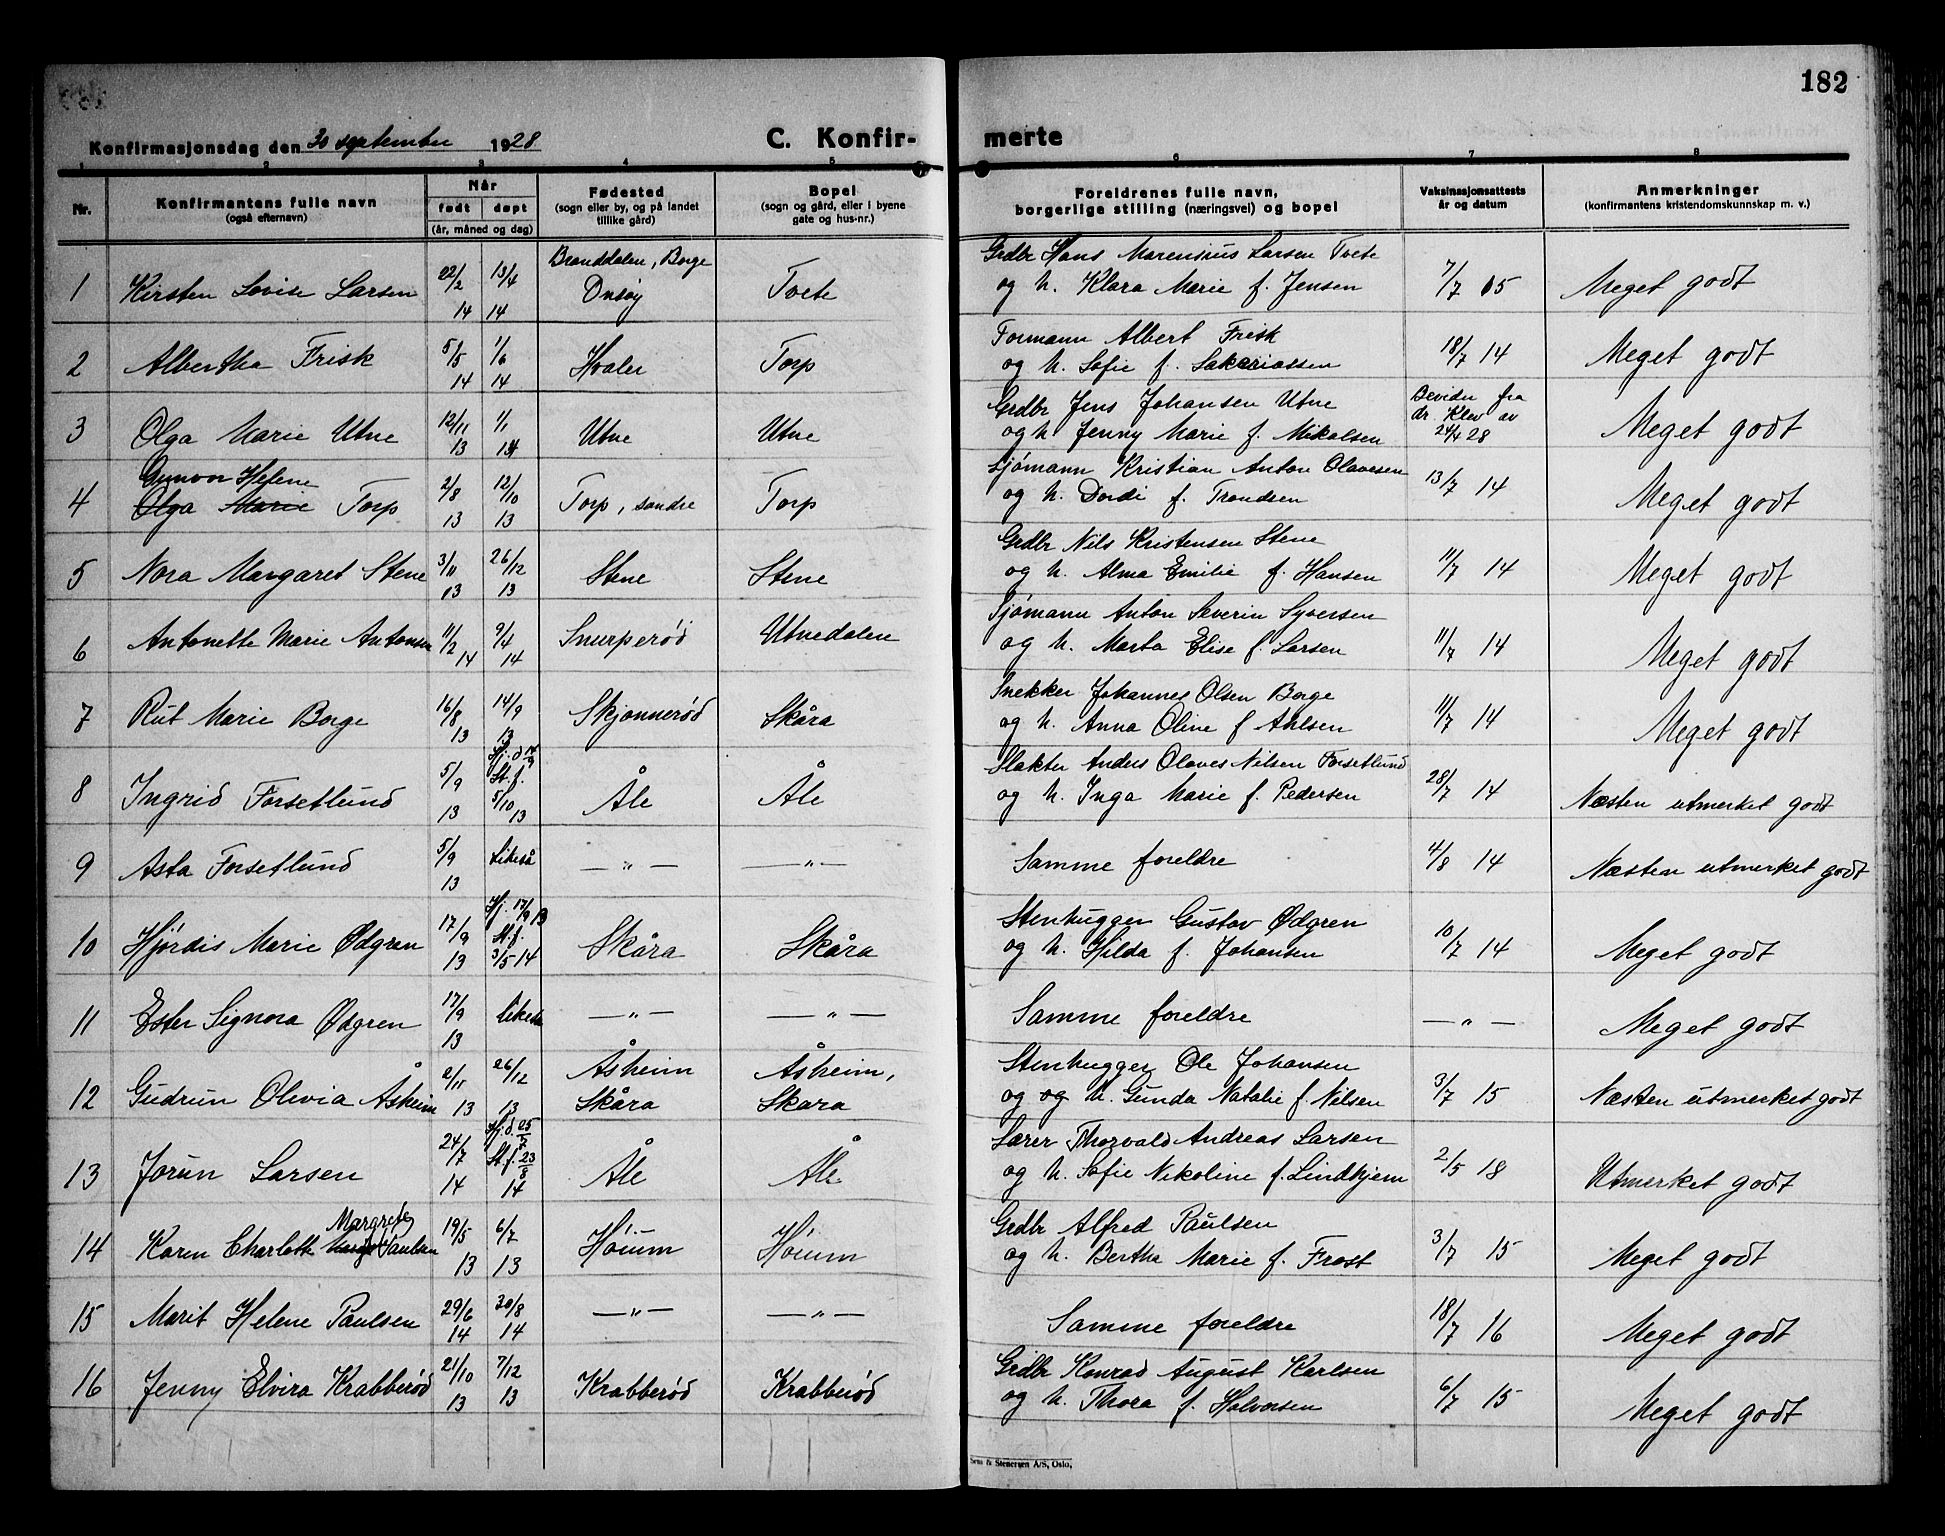 182
Konfirmasjonsdag den 30 september 1928
C. Konfir-
merte
1 2 3 4 5 6 7 8
Nr.
Konfirmantens fulle navn
(også efternavn)
Når
født døpt
(år, måned og dag)
Fødested
(sogn eller by, og på landet
tillike gård)
Bopel
(sogn og gård, eller i byene
gate og hus-nr.)
Foreldrenes fulle navn,
borgerlige stilling (næringsvei) og bopel
Vaksinasjonsattests
år og datum
Anmerkninger
(konfirmantens kristendomskunnskap m. v.)
Branddalen, Borge Grdbr Hans Marensius Larsen Tvete
1 Kirsten Lovise Larsen 22/2 13/4 Onsøy Tvete og h. Klara Marie f. Jensen 7/7 15 Meget godt
14 14
5/5 1/6 Formann Albert Frisk
2 Albertha Frisk 14 14 Hvaler Torp og h. Sofie f. Sakariassen 18/7 14 Meget godt
12/11 1/1 Grdbr Jens Johansen Utne Bevidn fra
dr Klev av
3 Olga Marie Utne 13 14 Utne Utne og h Jenny Marie f. Mikalsen 24/4 28 Meget godt
Gunvor Helene 2/8 12/10 Sjømann Kristian Anton Olavesen
4 Olga Marie Torp 13 13 Torp, søndre Torp og h. Dordi f. Trondsen 13/7 14 Meget godt
3/11 26/12 Grdbr Nils Kristensen Stene
5 Nora Margaret Stene 13 13 Stene Stene og h. Alma Emilie f. Hansen 11/7 14 Meget godt
11/2 9/4 Sjømann Anton Severin Syversen
6 Antonette Marie Antonsen 14 14 Snurperød Utnedalen og h. Marta Elise f. Larsen 11/7 14 Meget godt
16/8 14/9 Snekker Johannes Olsen Borge
7 Rut Marie Borge 13 13 Skjønnerød Skåra og h. Anna Oline f Ahlsen 11/7 14 Meget godt
5/9 Hj. d 14/9 Slakter Anders Olaves Nilsen Forsetlund
St. f.
8 Ingrid Forsetlund 13 5/10 13 Åle Åle og h. Inga Marie f. Pedersen 28/7 14 Næsten utmerket godt
9 Asta Forsetlund 5/9 13 Likeså — " — — " — Samme foreldre 4/8 14 Næsten utmerket godt
17/9 Hj. 17/9 13 Stenhugger Gustav Ødgren
St. f.
10 Hjørdis Marie Ødgren 13 3/5 14 Skåra Skåra og h. Hilda f. Johansen 10/7 14 Meget godt
11 Ester Signora Ødgren 17/9 13 Likeså — " — — " — Samme foreldre — " — Meget godt
2/11 26/12 Åsheim Åsheim, Stenhugger Ole Johansen
12 Gudrun Olivia Åsheim 13 13 Skåra Skåra og og h. Gunda Natalie f. Nilsen 3/7 15 Næsten utmerket godt
24/7 Hj. d. 25/7 Lærer Thorvald Andreas Larsen
St. f. 23/8
13 Jorun Larsen 14 14 Åle Åle og h. Sofie Nikoline f. Lindhjem 2/5 18 Utmerket godt
Margrete 19/5 6/7 Grdbr Alfred Paulsen
14 Karen Charlotte Paulsen 13 13 Høium Høium og h. Bertha Marie f. Frost 3/7 15 Meget godt
15 Marit Helene Paulsen 29/6 14 30/8 14 — " — — " — Samme foreldre 18/7 16 Meget godt
21/10 7/12 Grdbr Konrad August Karlsen
16 Jenny Elvira Krabberød 13 13 Krabberød Krabberød og h. Thora f. Halvorsen 6/7 15 Meget godt
& Stenersen A/S, Oslo,